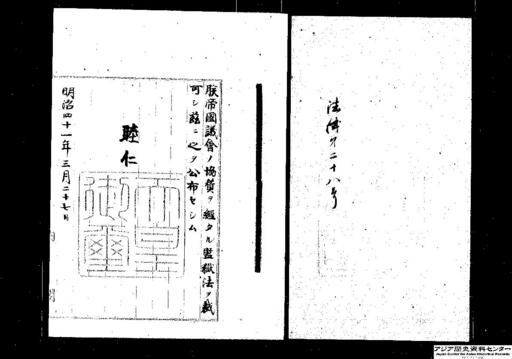 法律第二十八号
朕帝國議會ノ協賛ヲ經タル監獄法ヲ裁
可シ茲ニ之ヲ公布セシム
睦仁
天皇
御璽
明治四十一年三月二十七日
内閣
アジア歴史資料センター
Japan Center for Asian Historical Records